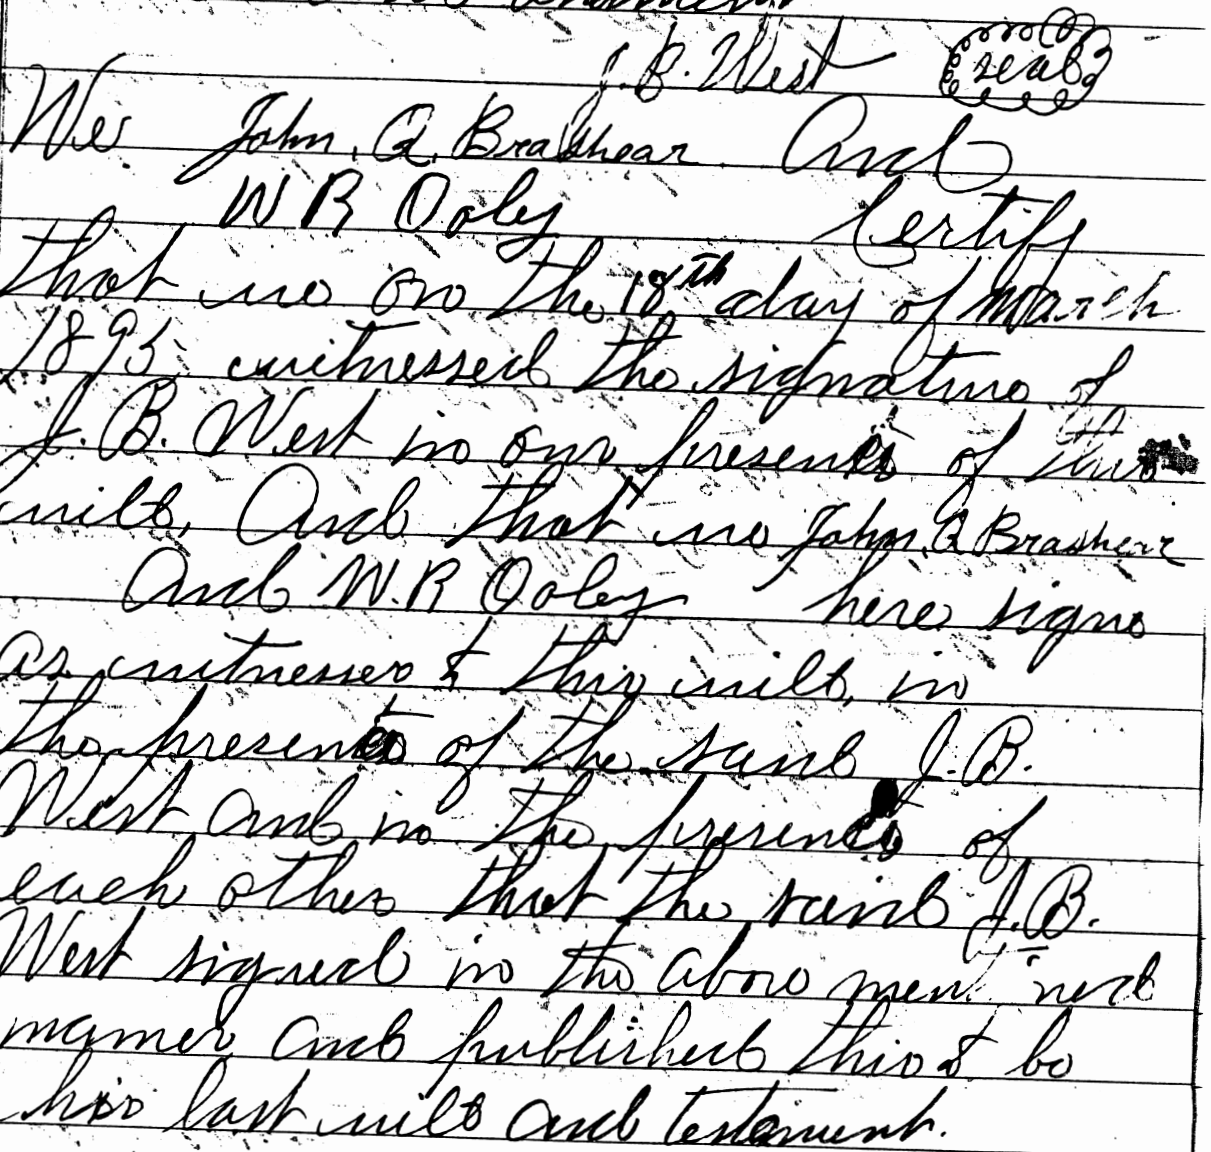 J. B. West seal
We John. Q. Brashear. And
W R Ooley Certify
that we on the 18th day of March
1895, witnessed the signature of
J. B. West in our presence of this
will, And that we John, Q Brashear
And W. R Ooley here signs
as witnesses to this will, in
the presence of the said J. B.
West and in the presence of
each other that the said J. B.
West signed in the above mentined
manner and published this to be
his last will and testament.